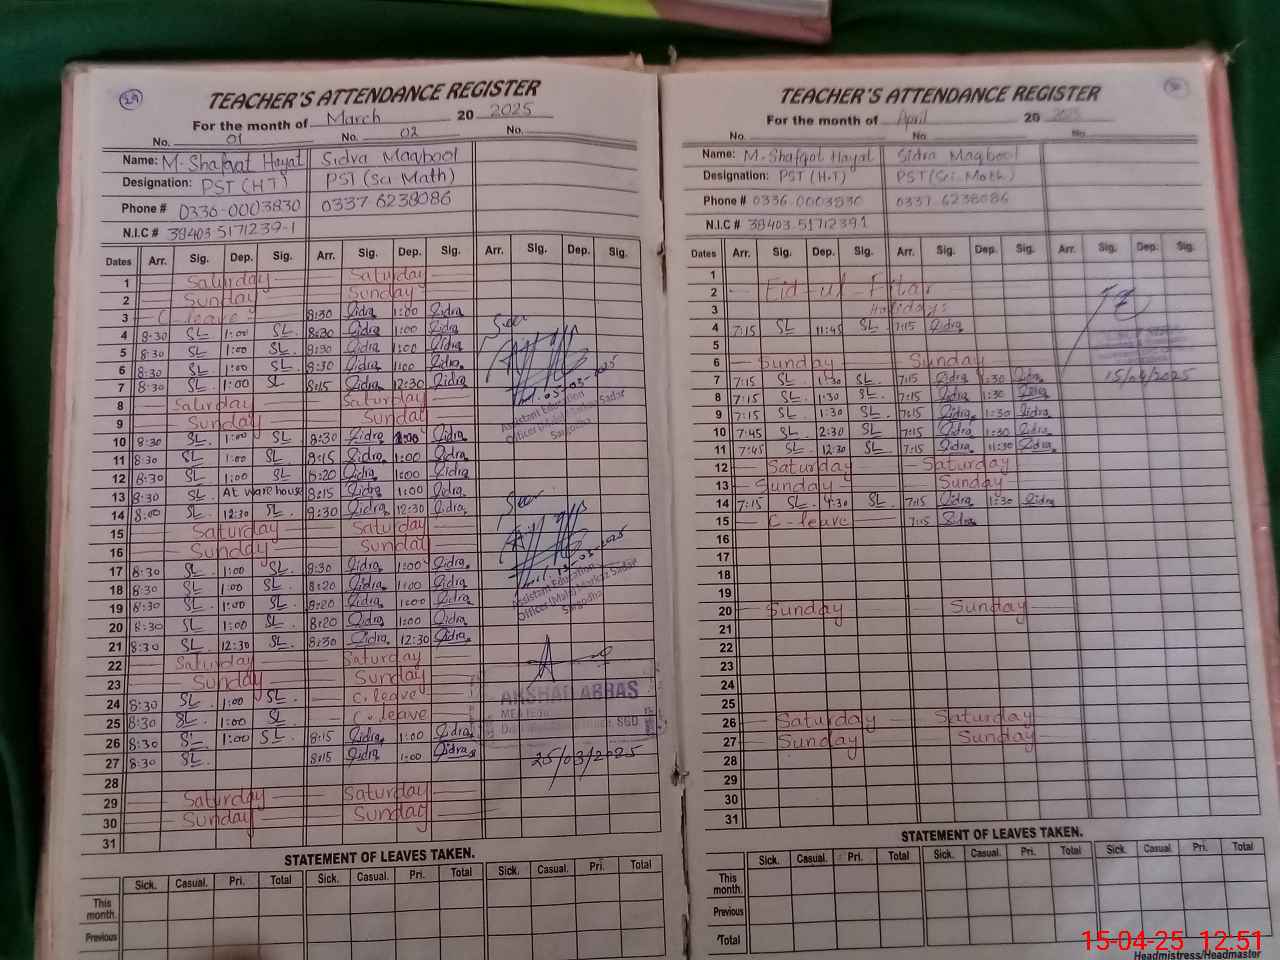 29
TEACHER'S ATTENDANCE REGISTER
For the month of March 2025
No. 01 No. 02 No.
Name: M. Shafqat Hayat Sidra Maqbool
Designation: PST (H.T) PST (Sci-Math)
Phone # 0336-0003830 0337-6238086
N.I.C # 38403-5171239-1
Dates Arr. Sig. Dep. Sig. Arr. Sig. Dep. Sig. Arr. Sig. Dep. Sig.
1 Saturday Saturday
2 Sunday Sunday
3 C-leave 8:30 Sidra 1:00 Sidra
4 8:30 SL 1:00 SL 8:30 Sidra 1:00 Sidra
5 8:30 SL 1:00 SL 8:30 Sidra 1:00 Sidra
6 8:30 SL 1:00 SL 8:30 Sidra 1:00 Sidra
7 8:30 SL 1:00 SL 8:15 Sidra 12:30 Sidra
8 Saturday Saturday
9 Sunday Sunday
10 8:30 SL 1:00 SL 8:30 Sidra 1:00 Sidra
11 8:30 SL 1:00 SL 8:15 Sidra 1:00 Sidra
12 8:30 SL 1:00 SL 8:20 Sidra 1:00 Sidra
13 8:30 SL At warehouse 8:15 Sidra 1:00 Sidra
14 8:00 SL 12:30 SL 8:30 Sidra 12:30 Sidra
15 Saturday Saturday
16 Sunday Sunday
17 8:30 SL 1:00 SL 8:30 Sidra 1:00 Sidra
18 8:30 SL 1:00 SL 8:20 Sidra 1:00 Sidra
19 8:30 SL 1:00 SL 8:20 Sidra 1:00 Sidra
20 8:30 SL 1:00 SL 8:20 Sidra 1:00 Sidra
21 8:30 SL 12:30 SL 8:30 Sidra 12:30 Sidra
22 Saturday Saturday
23 Sunday Sunday
24 8:30 SL 1:00 SL C.leave
25 8:30 SL 1:00 SL C.leave
26 8:30 SL 1:00 SL 8:15 Sidra 1:00 Sidra
27 8:30 SL 8:15 Sidra 1:00 Sidra
28
29 Saturday Saturday
30 Sunday Sunday
31
Seen
03-2025
Assistant Education
Officer (Male) Markaz Sadar
Sargodha
Seen
03-2025
Assistant Education
Officer (Male) Markaz Sadar
Sargodha
ABBAS
SGD
25/03/2025
STATEMENT OF LEAVES TAKEN.
Sick. Casual. Pri. Total Sick. Casual. Pri. Total Sick. Casual. Pri. Total
This month.
Previous
TEACHER'S ATTENDANCE REGISTER
For the month of April 20 2025
No. No No
Name: M-Shafqat Hayat Sidra Maqbool
Designation: PST (H.T) PST (Sci-Math)
Phone # 0336-0003830 0337-6238086
N.I.C # 38403-51712391
Dates Arr. Sig. Dep. Sig. Arr. Sig. Dep. Sig. Arr. Sig. Dep. Sig.
1
2 Eid-ul-Fitar
3 Holidays
4 7:15 SL 11:45 SL 7:15 Sidra
5
6 Sunday Sunday
7 7:15 SL 1:30 SL 7:15 Sidra 1:30 Sidra
8 7:15 SL 1:30 SL 7:15 Sidra 1:30 Sidra
9 7:15 SL 1:30 SL 7:15 Sidra 1:30 Sidra
10 7:45 SL 2:30 SL 7:15 Sidra 1:30 Sidra
11 7:45 SL 12:30 SL 7:15 Sidra 11:30 Sidra
12 Saturday Saturday
13 Sunday Sunday
14 7:15 SL 4:30 SL 7:15 Sidra 1:30 Sidra
15 C-leave 7:15 Sidra
16
17
18
19
20 Sunday Sunday
21
22
23
24
25
26 Saturday Saturday
27 Sunday Sunday
28
29
30
31
15/04/2025
STATEMENT OF LEAVES TAKEN.
Sick. Casual. Pri. Total Sick. Casual. Pri. Total Sick. Casual. Pri. Total
This month.
Previous
Total
Headmistress/Headmaster
15-04-25 12:51